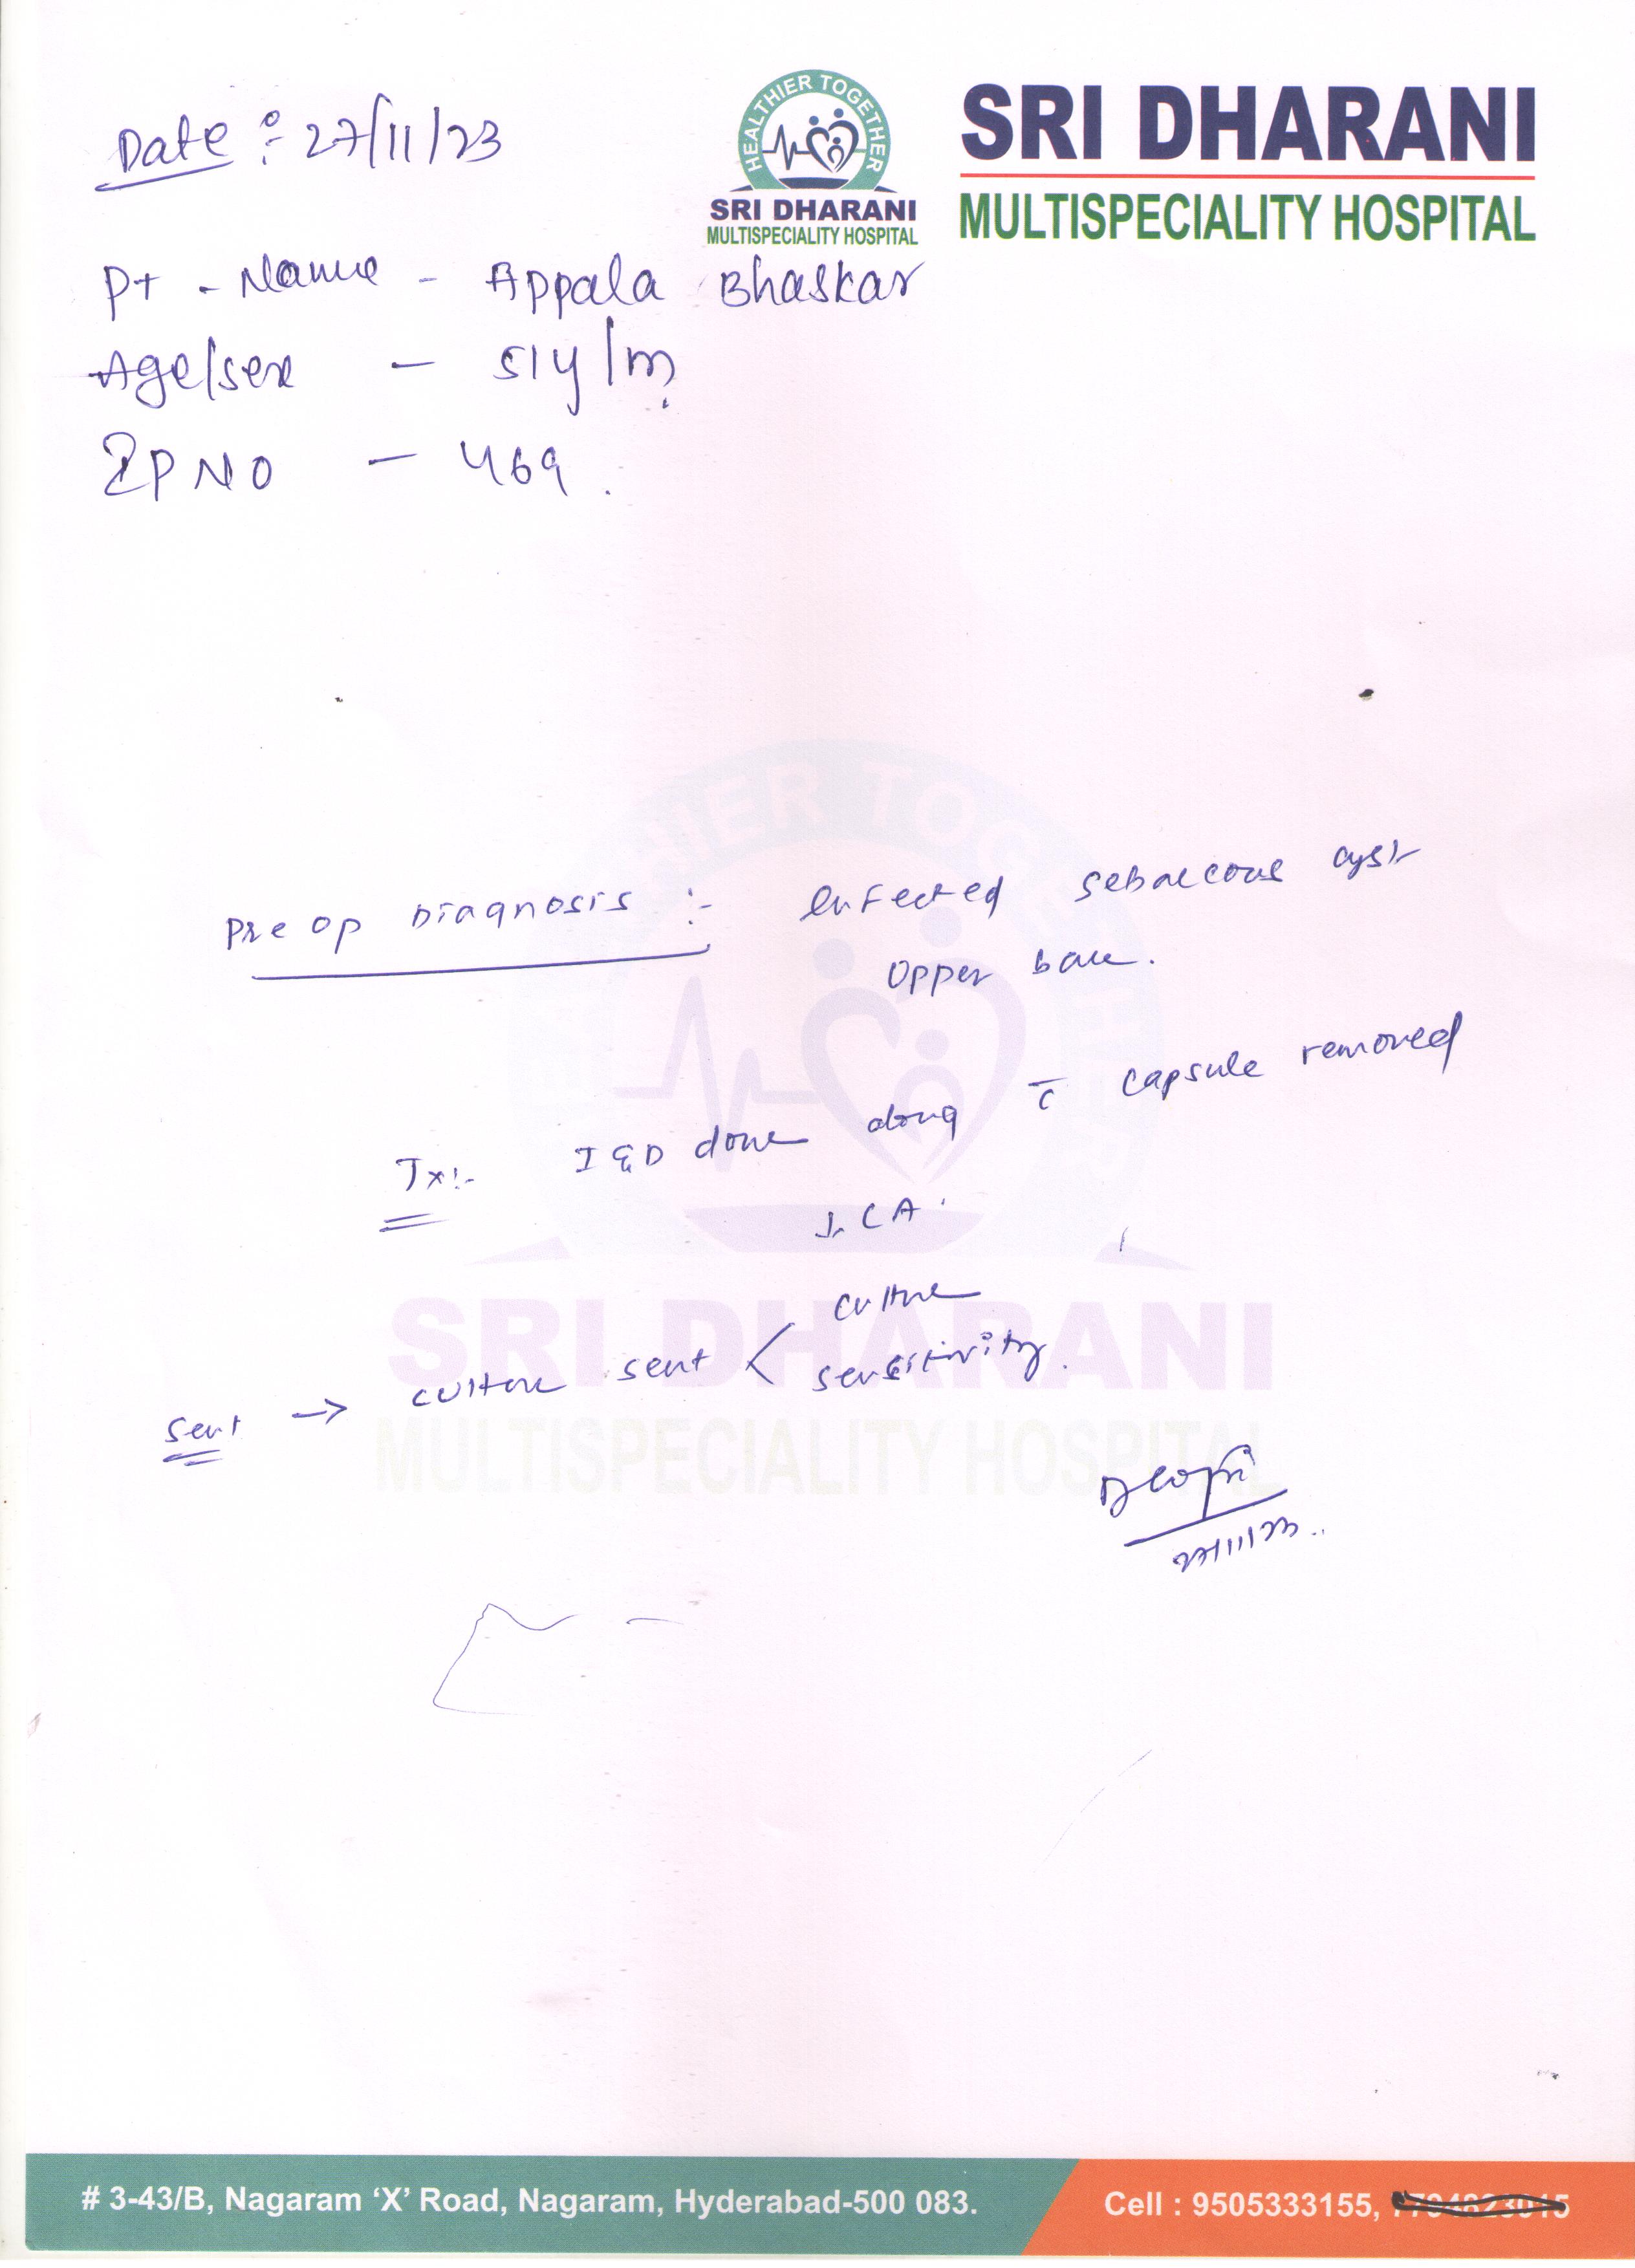 Date :- 27/11/23
HEALTHIER TOGETHER
SRI DHARANI
MULTISPECIALITY HOSPITAL
SRI DHARANI
MULTISPECIALITY HOSPITAL
Pt - Name - Appala Bhaskar
Age/sex - 51y/m
IP NO - 469.
Pre op Diagnosis :- Infected sebaceous cyst
Upper
Tx:- I & D done along c̄ capsule removed
LA.
culture
sent → culture sent < sensitivity.
27/11/23
SRI DHARANI
MULTISPECIALITY HOSPITAL
# 3-43/B, Nagaram ‘X’ Road, Nagaram, Hyderabad-500 083.
Cell : 9505333155,